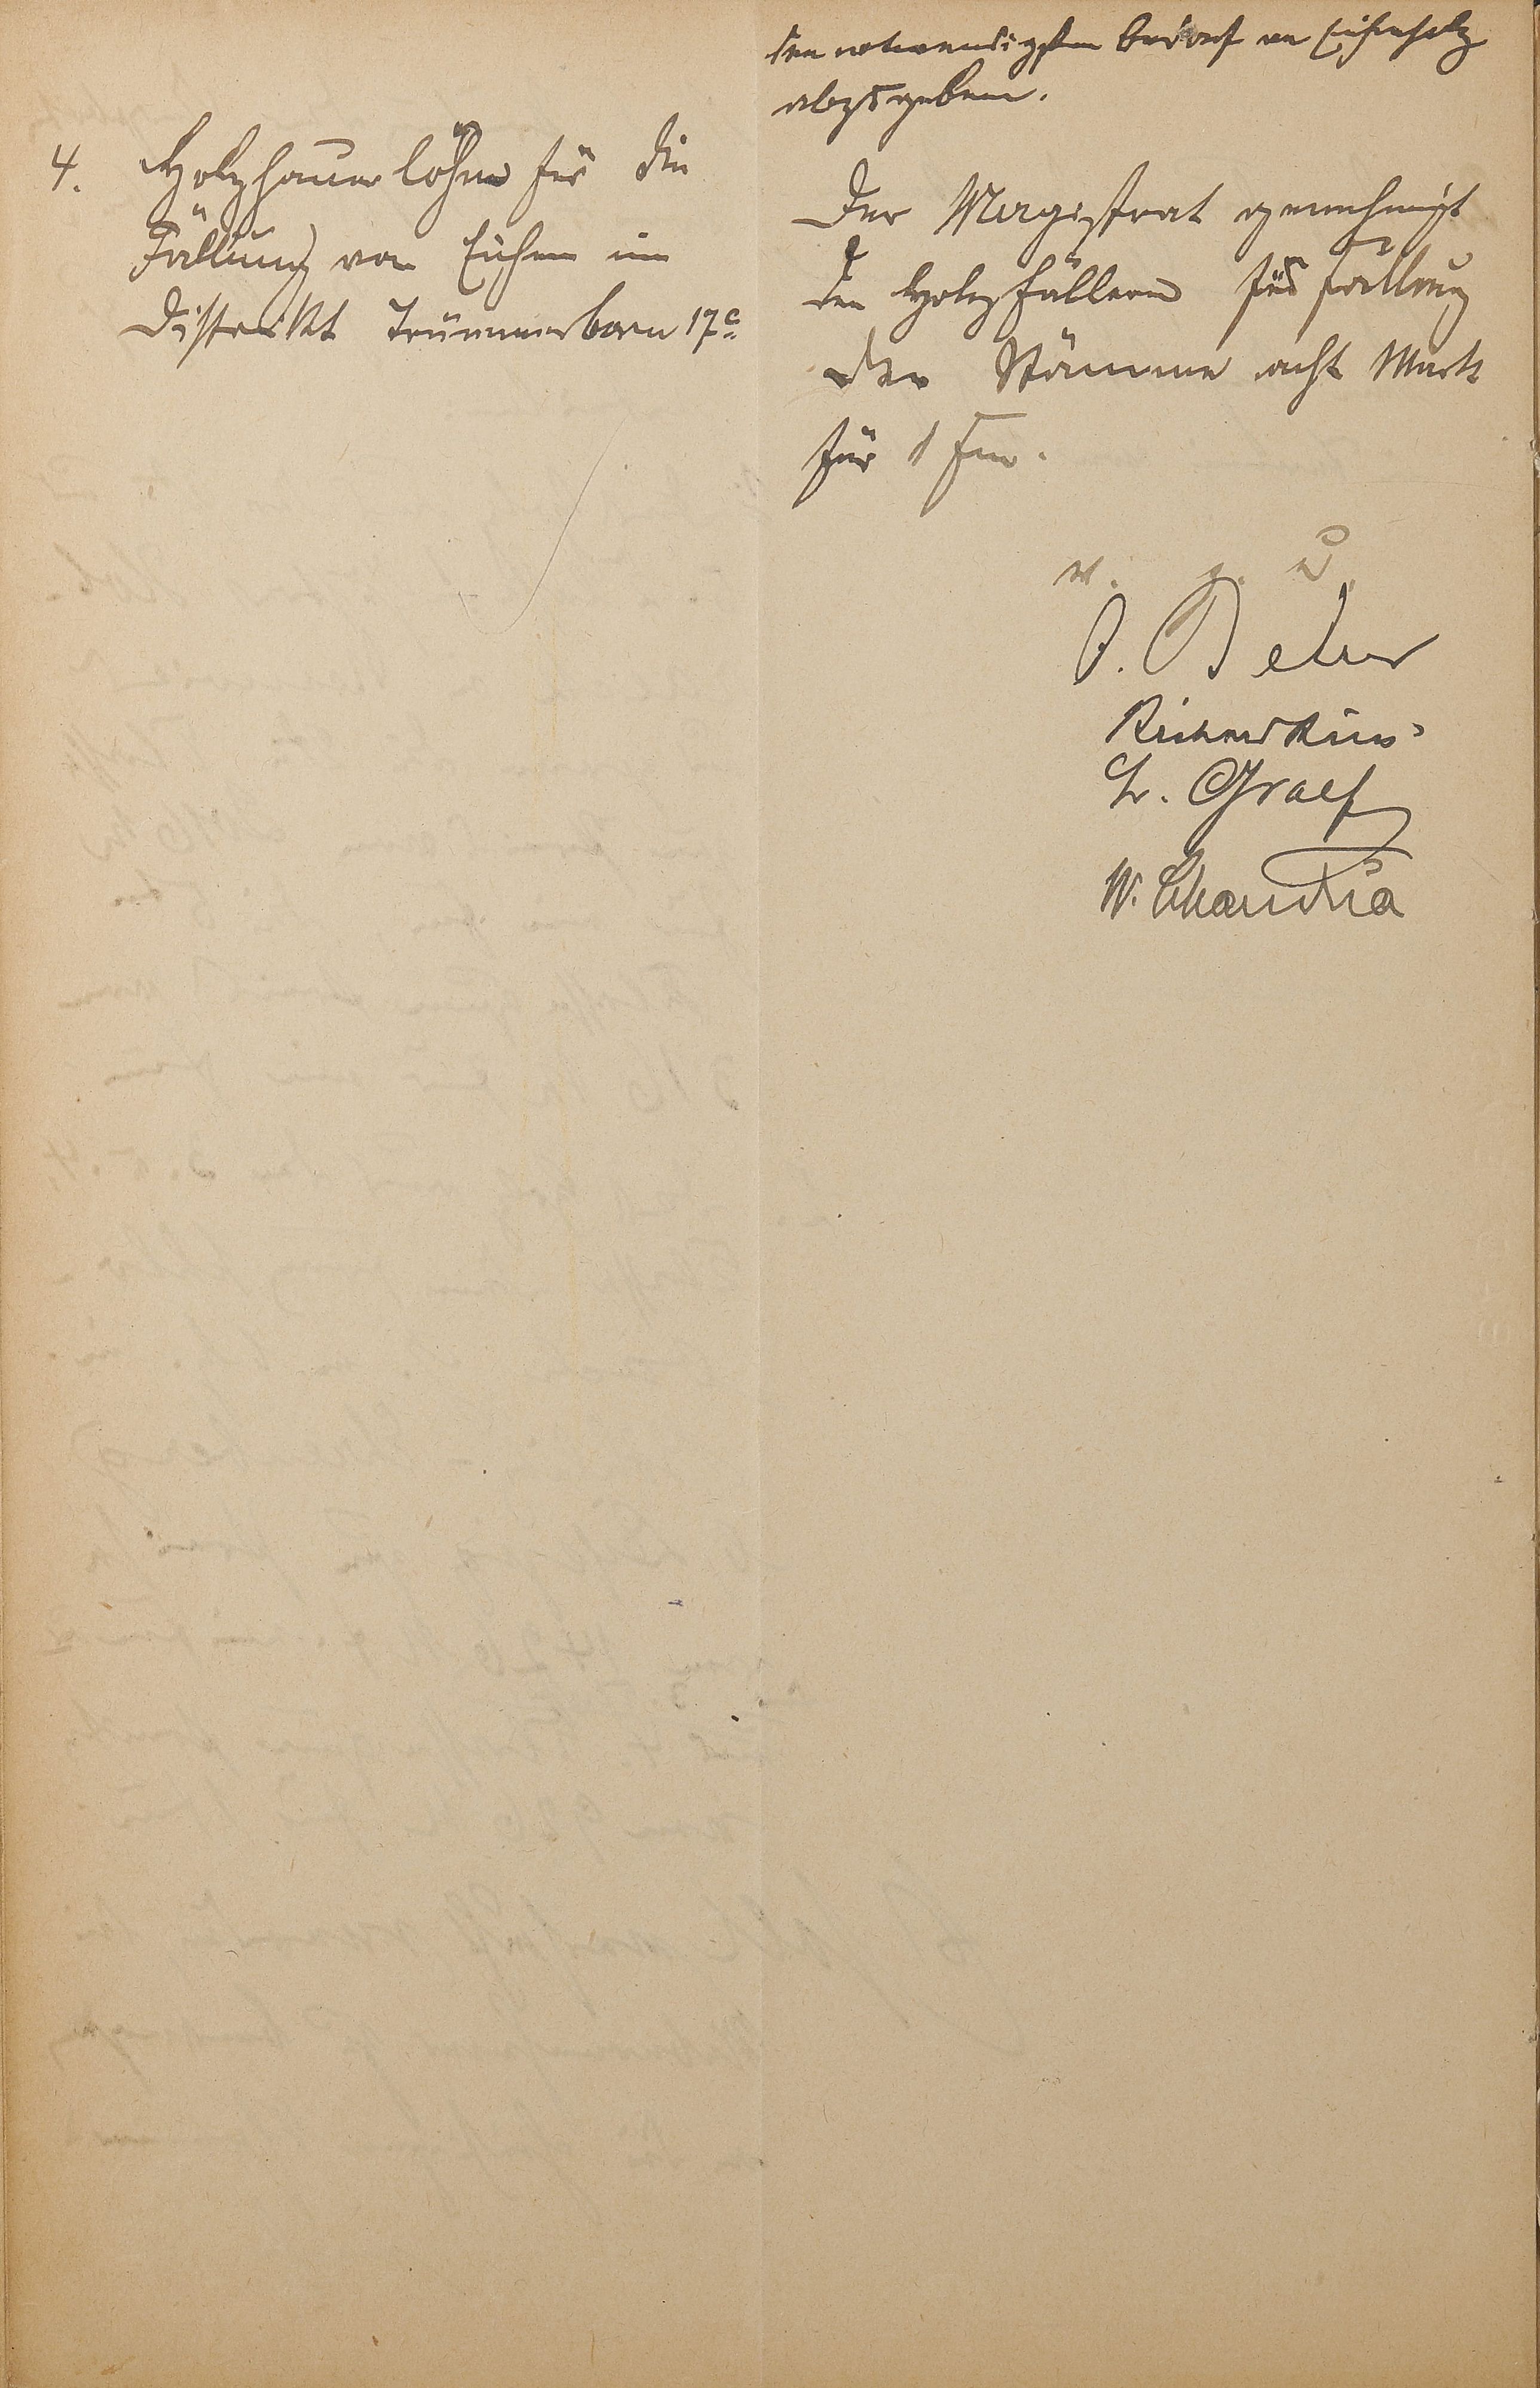 den notwendigsten Bedarf an Eichenholz
abzugeben.
4. Holzhauerlöhne für die
Fällung von Eichen im
Distrikt Trümmerborn 17c
Der Magistrat genehmigt
den Holzfällern für Fällung
der Stämme acht Mark
für 1 Fm.
v. g. u.
Richard
Graef
W.